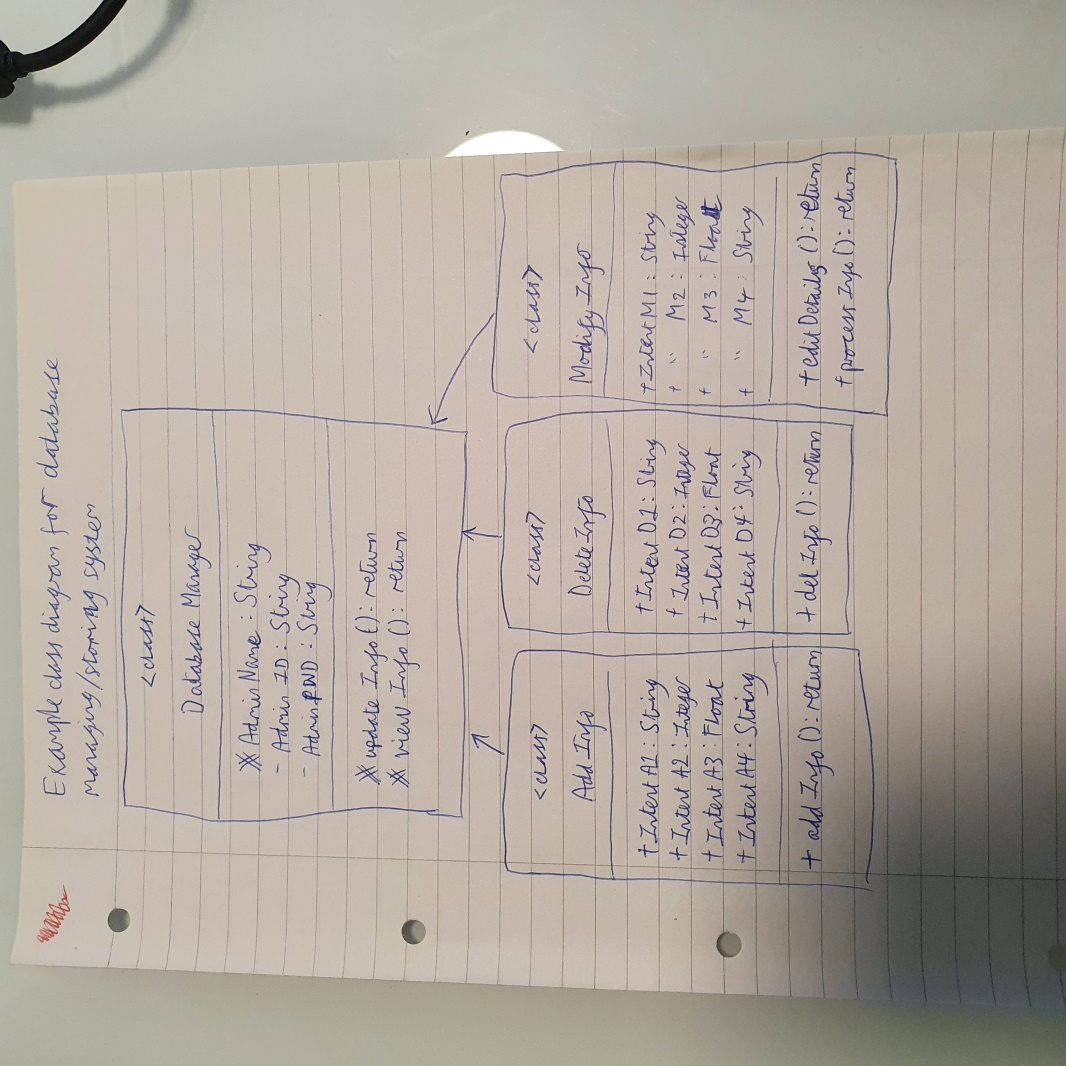 Example class diagram for database
managing/storing system
<class>
Database Manager
※ Admin Name : String
- Admin ID : String
- Admin PWD : String
※ update Info () : return
※ view Info () : return
<class>
Add Info
+ Intent A1 : String
+ Intent A2 : Integer
+ Intent A3 : Float
+ Intent A4 : String
+ add Info () : return
<class>
Delete Info
+ Intent D1 : String
+ Intent D2 : Integer
+ Intent D3 : Float
+ Intent D4 : String
+ del Info () : return
<class>
Modify Info
+ Intent M1 : String
+ " M2 : Integer
+ " M3 : Float
+ " M4 : String
+ edit Details () : return
+ process Info () : return